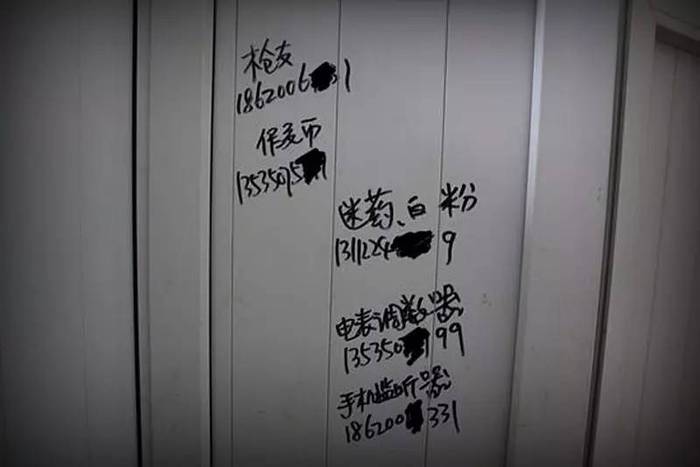 枪支
1862006 31
币
13535075 1
迷药、白粉
1311224 9
电表调数器
135350 199
手机监听器
186200 331